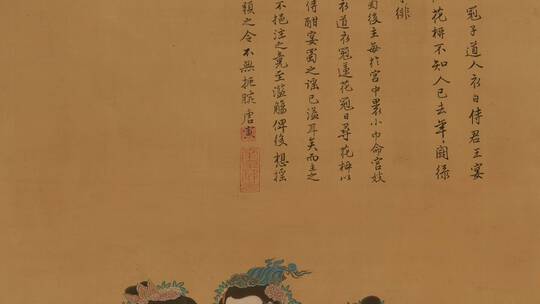 冠子道人衣日侍君王宴
花柳不知人已去年年鬪綠
緋
蜀後主每於宮中裹小巾命宮妓
衣道衣冠蓮花冠日尋花柳以
侍酣宴蜀之謠已溢耳矣而主之
不挹注之竟至濫觴俾後想搖
頸之令不無扼腕唐寅